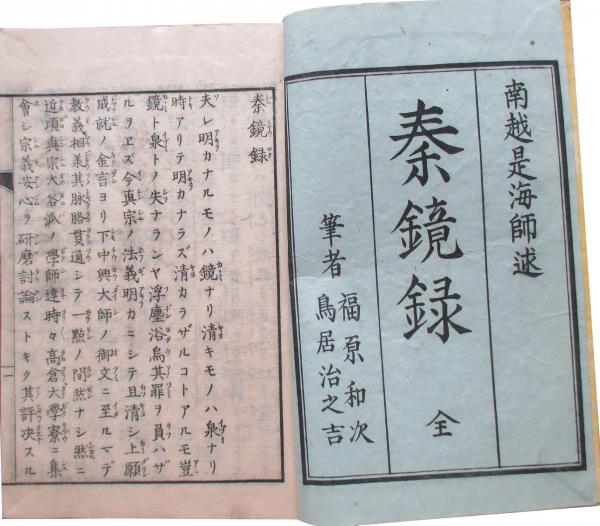 南越是海師述
秦鏡録
全
筆者 福原和次
鳥居治之吉
秦鏡録
夫レ明カナルモノハ鏡ナリ清キモノハ泉ナリ
時アリテ明カナラズ清カラザルコトアルモ豈
鏡ト泉トノ失ナランヤ浮塵浴烏其罪ヲ負ハザ
ルヲエズ今真宗ノ法義明カニシテ且清シ上願
成就ノ金言ヨリ下中興大師ノ御文ニ至ルマデ
教義相承其脉胳貫通シテ一點ノ間然ナシ然ニ
近頃真宗大谷派ノ學師達時々高倉大學寮ニ集
會シ宗義安心ヲ研磨討論ストキク其評决スル